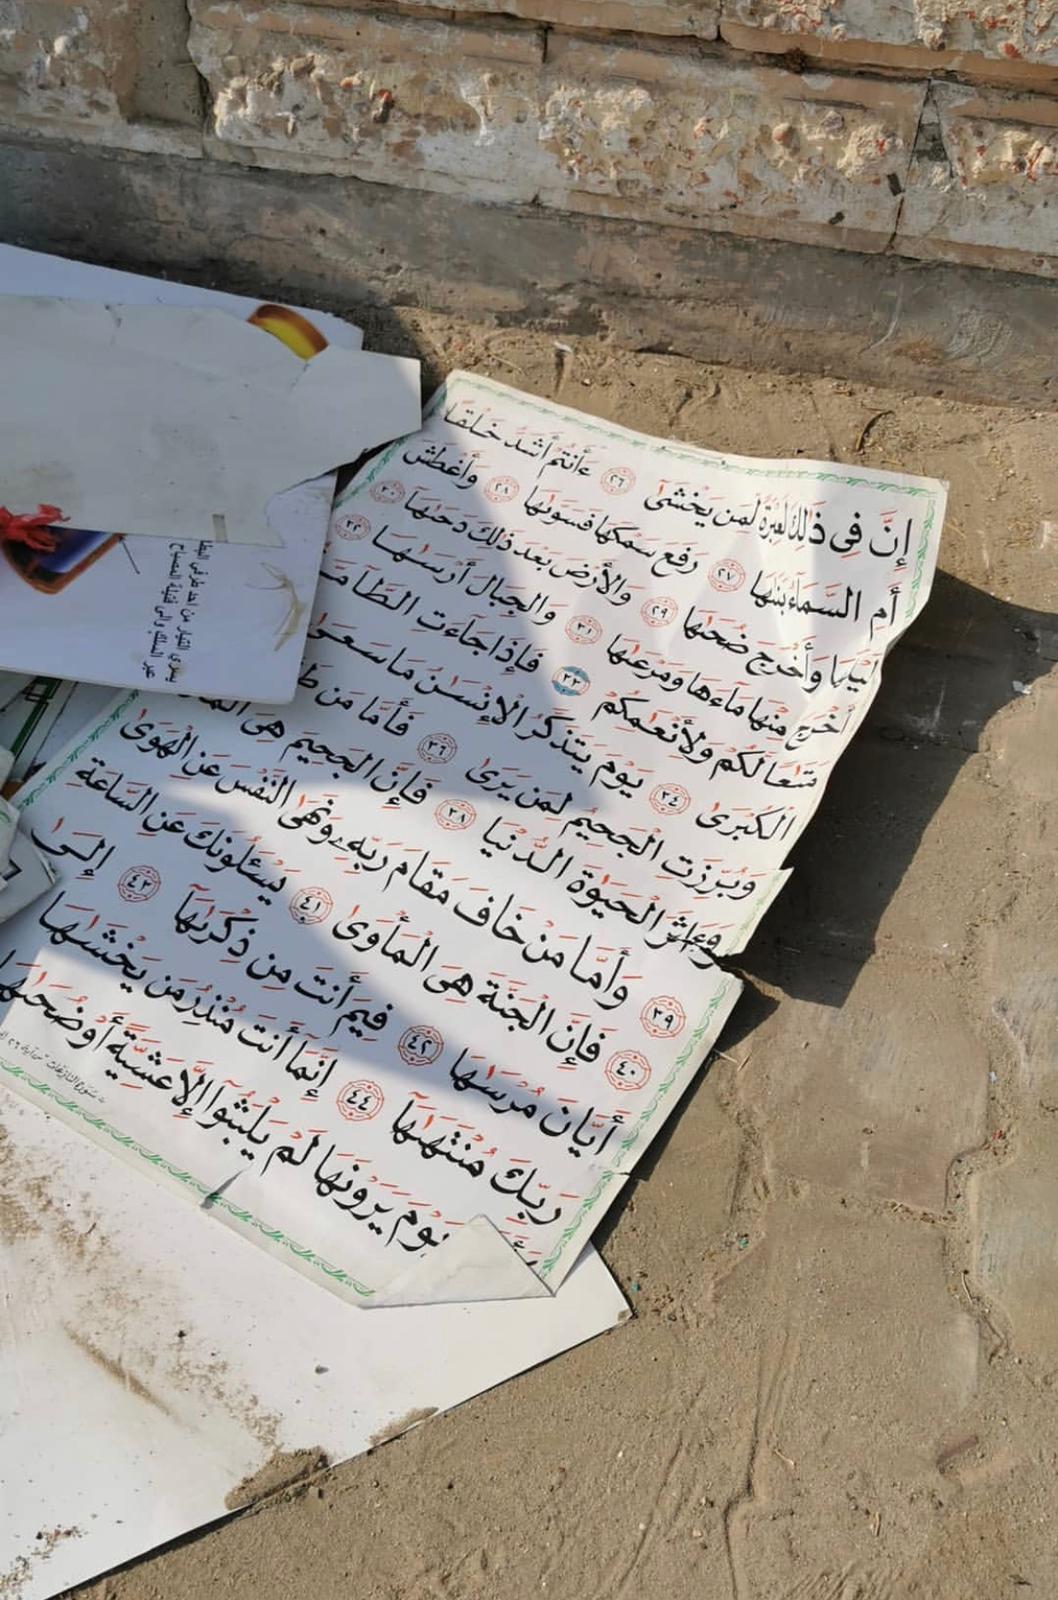 إِنَّ فِى ذَٰلِكَ لَعِبْرَةً لِّمَن يَخْشَىٰٓ ٢٦ ءَأَنتُمْ أَشَدُّ خَلْقًا
أَمِ ٱلسَّمَآءُ بَنَىٰهَا ٢٧ رَفَعَ سَمْكَهَا فَسَوَّىٰهَا ٢٨ وَأَغْطَشَ
لَيْلَهَا وَأَخْرَجَ ضُحَىٰهَا ٢٩ وَٱلْأَرْضَ بَعْدَ ذَٰلِكَ دَحَىٰهَآ ٣٠
أَخْرَجَ مِنْهَا مَآءَهَا وَمَرْعَىٰهَا ٣١ وَٱلْجِبَالَ أَرْسَىٰهَا ٣٢
مَتَٰعًا لَّكُمْ وَلِأَنْعَٰمِكُمْ ٣٣ فَإِذَا جَآءَتِ
ٱلْكُبْرَىٰ ٣٤ يَوْمَ يَتَذَكَّرُ ٱلْإِنسَٰنُ مَا سَعَىٰ
وَبُرِّزَتِ ٱلْجَحِيمُ لِمَن يَرَىٰ ٣٦ فَأَمَّا مَن
وَءَاثَرَ ٱلْحَيَوٰةَ ٱلدُّنْيَا ٣٨ فَإِنَّ ٱلْجَحِيمَ هِىَ
٣٩ وَأَمَّا مَنْ خَافَ مَقَامَ رَبِّهِۦ وَنَهَى ٱلنَّفْسَ عَنِ ٱلْهَوَىٰ
٤٠ فَإِنَّ ٱلْجَنَّةَ هِىَ ٱلْمَأْوَىٰ ٤١ يَسْـَٔلُونَكَ عَنِ ٱلسَّاعَةِ
أَيَّانَ مُرْسَىٰهَا ٤٢ فِيمَ أَنتَ مِن ذِكْرَىٰهَآ ٤٣ إِلَىٰ
رَبِّكَ مُنتَهَىٰهَآ ٤٤ إِنَّمَآ أَنتَ مُنذِرُ مَن يَخْشَىٰهَا
يَوْمَ يَرَوْنَهَا لَمْ يَلْبَثُوٓا۟ إِلَّا عَشِيَّةً أَوْ ضُحَىٰهَا
سورة النازعات